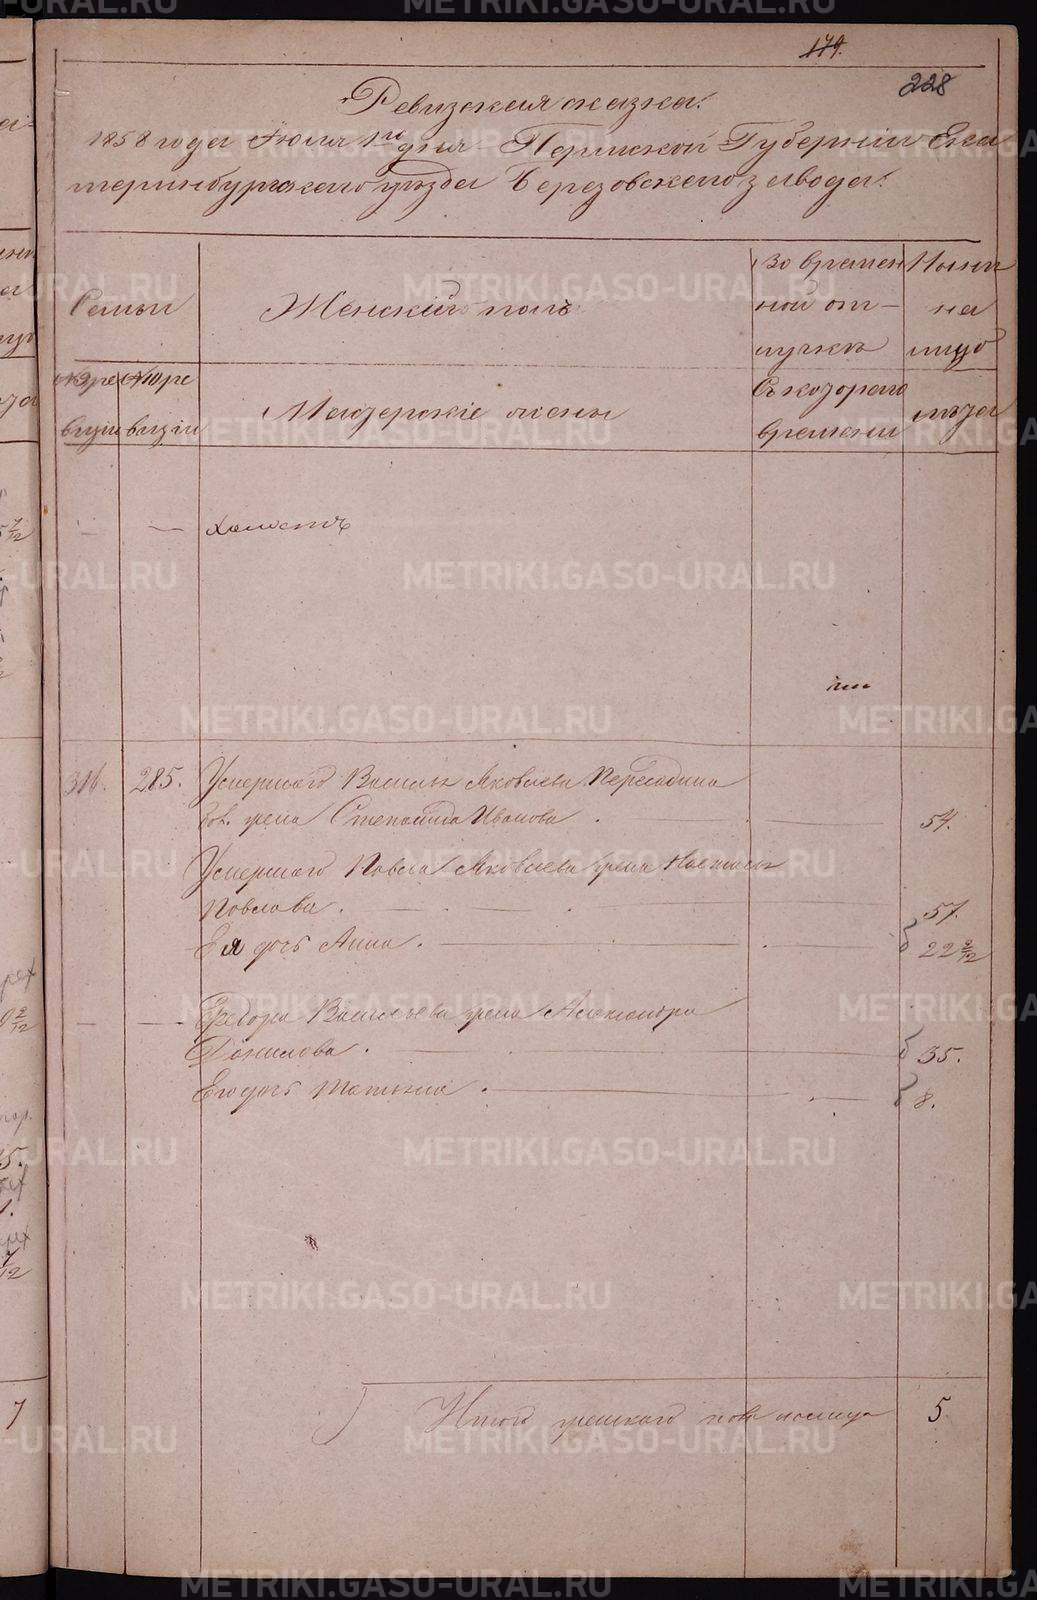 179.
228
Ревизская сказка.
1858 года Июля 1го дня Пермской Губерніи Ека
теринбургскаго уѣзда Березовскаго завода.
Семьи
Женскій полъ
Во времен
ной от-
лучкѣ
Нынѣ
на
лицо
№ 9 ре
визіи
№ 10 ре
визіи
Мастерскіе жены
Съ котораго
времени
лѣта
— — холостъ
316. 285. Умершаго Василья Яковлева Пересадина
жена Степанида Иванова. 54.
Умершаго Павла Яковлева жена Настасья
Павлова. 57.
Ея дочь Анна. 22 2/12
— — Федора Васильева жена Александра
Данилова. 35.
Его дочь Татьяна. 8.
Итого женскаго пола на лицо 5
METRIKI.GASO-URAL.RU